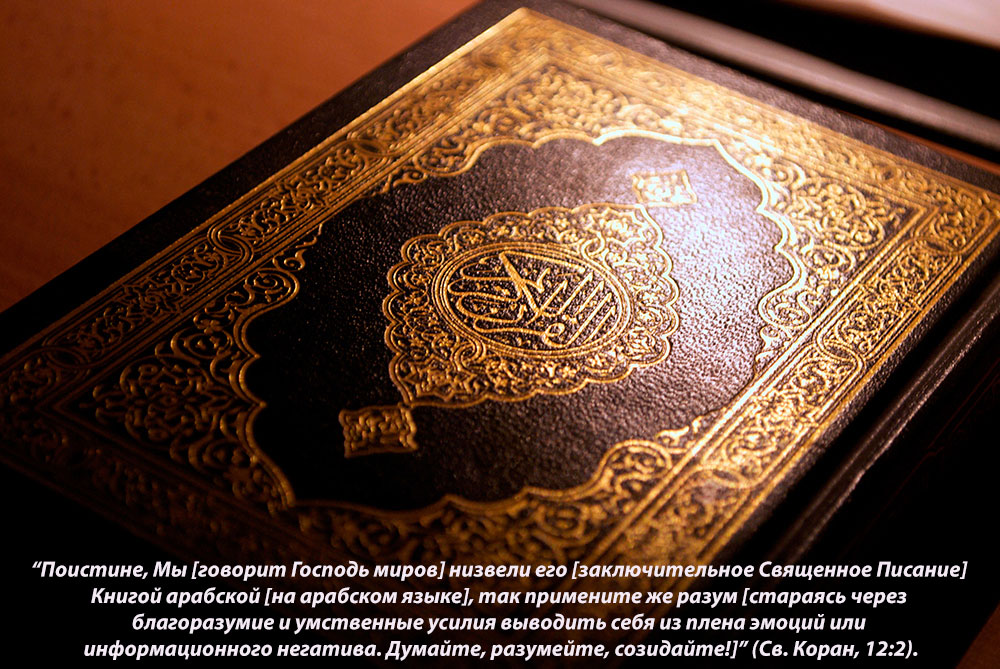 القرآن الكريم
“Поистине, Мы [говорит Господь миров] низвели его [заключительное Священное Писание]
Книгой арабской [на арабском языке], так примените же разум [стараясь через
благоразумие и умственные усилия выводить себя из плена эмоций или
информационного негатива. Думайте, разумейте, созидайте!]” (Св. Коран, 12:2).